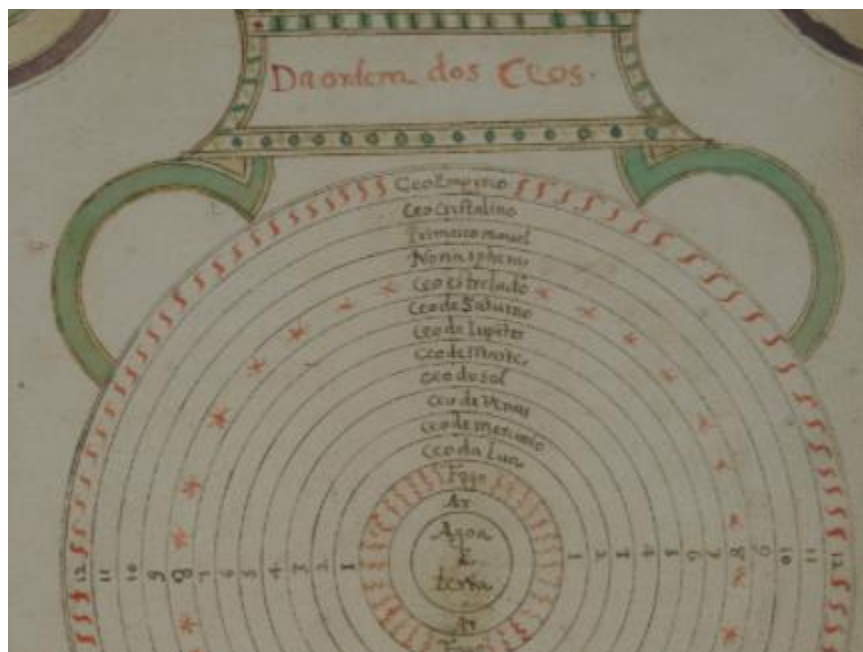 Da ordem dos Ceos.
Ceo Empirio
Ceo Cristalino
Primeiro mouel
Nona sphera
Ceo estrelado
Ceo de Saturno
Ceo de Iupiter
Ceo de Marte
Ceo do sol
Ceo de Venus
Ceo de mercurio
Ceo da Lua
Fogo
Ar
Agoa
&
terra
12 11 10 9 8 7 6 5 4 3 2 1 1 2 3 4 5 6 7 8 9 10 11 12
Ar
Fogo